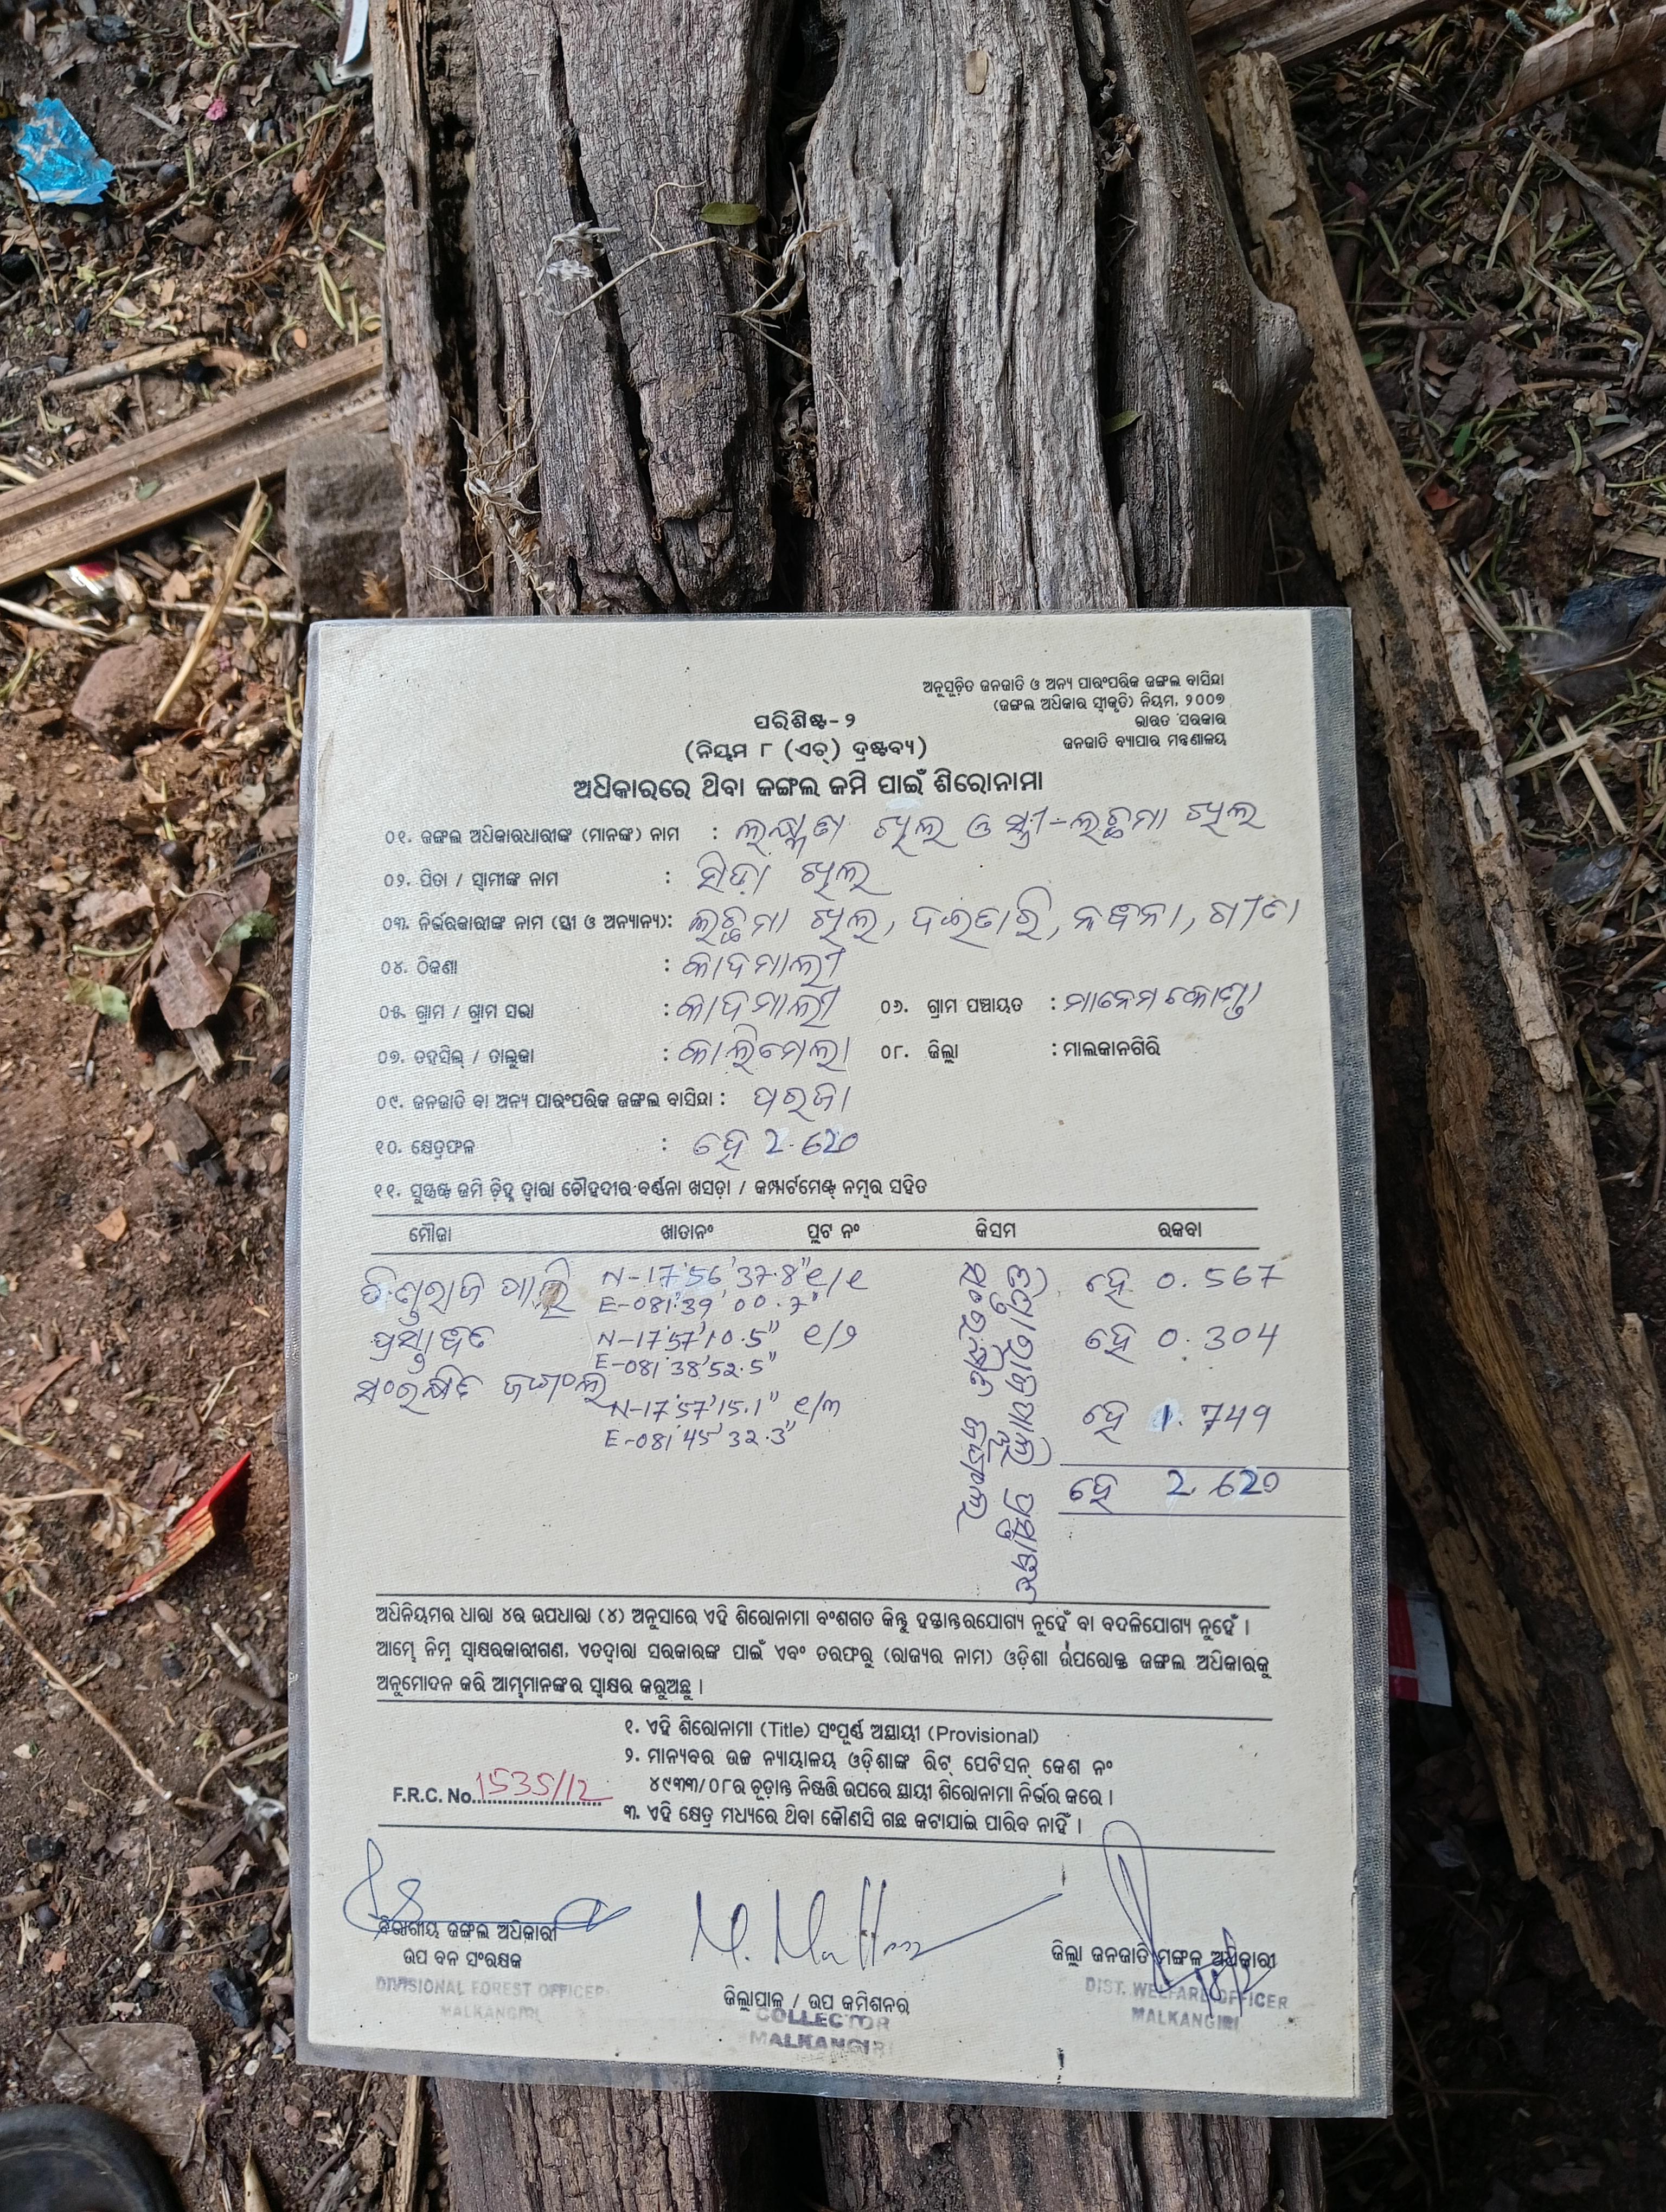 ଅନୁସୂଚିତ ଜନଜାତି ଓ ଅନ୍ୟ ପାରଂପରିକ ଜଙ୍ଗଲ ବାସିନ୍ଦା
(ଜଙ୍ଗଲ ଅଧିକାର ସ୍ୱୀକୃତି) ନିୟମ, ୨୦୦୭
ଭାରତ ସରକାର
ଜନଜାତି ବ୍ୟାପାର ମନ୍ତ୍ରଣାଳୟ
ପରିଶିଷ୍ଟ-୨
(ନିୟମ ୮ (ଏଚ୍) ଦ୍ରଷ୍ଟବ୍ୟ)
ଅଧିକାରରେ ଥିବା ଜଙ୍ଗଲ ଜମି ପାଇଁ ଶିରୋନାମା
୦୧. ଜଙ୍ଗଲ ଅଧିକାରଧାରୀଙ୍କ (ମାନଙ୍କ) ନାମ : ଓ ସ୍ତ୍ରୀ-ଲଚ୍ଛମା
୦୨. ପିତା / ସ୍ୱାମୀଙ୍କ ନାମ :
୦୩. ନିର୍ଭରକାରୀଙ୍କ ନାମ (ସ୍ତ୍ରୀ ଓ ଅନ୍ୟାନ୍ୟ): ଲଚ୍ଛମା
୦୪. ଠିକଣା : କାଦମାଲୀ
୦୫. ଗ୍ରାମ / ଗ୍ରାମ ସଭା : କାଦମାଲୀ ୦୬. ଗ୍ରାମ ପଞ୍ଚାୟତ : ମାନେମକୋଣ୍ଡା
୦୭. ତହସିଲ୍ / ତାଲୁକା : କାଲିମେଲା ୦୮. ଜିଲ୍ଲା : ମାଲକାନଗିରି
୦୯. ଜନଜାତି ବା ଅନ୍ୟ ପାରଂପରିକ ଜଙ୍ଗଲ ବାସିନ୍ଦା : ପରଜା
୧୦. କ୍ଷେତ୍ରଫଳ : ହେ 2.620
୧୧. ସୁସ୍ପଷ୍ଟ ଜମି ଚିହ୍ନ ଦ୍ୱାରା ଚୌହଦୀର ବର୍ଣ୍ଣନା ଖସଡ଼ା / କମ୍ପାର୍ଟମେଣ୍ଟ ନମ୍ବର ସହିତ
ମୌଜା ଖାତାନଂ ପ୍ଲଟ ନଂ କିସମ ରକବା
N-17°56'37.8" ୧/୧ ହେ 0.567
E-081°39'00.7"
ପ୍ରସ୍ତାବିତ N-17°57'10.5" ୧/୨ ହେ 0.304
E-081°38'52.5"
ସଂରକ୍ଷିତ ଜଙ୍ଗଲ N-17°57'15.1" ୧/୩ ହେ 1.749
E-081°45'32.3"
ହେ 2.620
ପ୍ରସ୍ତାବିତ
ସଂରକ୍ଷିତ ଜଙ୍ଗଲ
ଅଧିନିୟମର ଧାରା ୪ର ଉପଧାରା (୪) ଅନୁସାରେ ଏହି ଶିରୋନାମା ବଂଶଗତ କିନ୍ତୁ ହସ୍ତାନ୍ତରଯୋଗ୍ୟ ନୁହେଁ ବା ବଦଳିଯୋଗ୍ୟ ନୁହେଁ ।
ଆମ୍ଭେ ନିମ୍ନ ସ୍ୱାକ୍ଷରକାରୀଗଣ, ଏତଦ୍ୱାରା ସରକାରଙ୍କ ପାଇଁ ଏବଂ ତରଫରୁ (ରାଜ୍ୟର ନାମ) ଓଡ଼ିଶା ଉପରୋକ୍ତ ଜଙ୍ଗଲ ଅଧିକାରକୁ
ଅନୁମୋଦନ କରି ଆମ୍ଭମାନଙ୍କର ସ୍ୱାକ୍ଷର କରୁଅଛୁ ।
୧. ଏହି ଶିରୋନାମା (Title) ସଂପୂର୍ଣ୍ଣ ଅସ୍ଥାୟୀ (Provisional)
୨. ମାନ୍ୟବର ଉଚ୍ଚ ନ୍ୟାୟାଳୟ ଓଡ଼ିଶାଙ୍କ ରିଟ୍ ପେଟିସନ୍ କେଶ ନଂ
୪୯୩୩/୦୮ର ଚୂଡ଼ାନ୍ତ ନିଷ୍ପତ୍ତି ଉପରେ ସ୍ଥାୟୀ ଶିରୋନାମା ନିର୍ଭର କରେ ।
F.R.C. No. 1535/12
୩. ଏହି କ୍ଷେତ୍ର ମଧ୍ୟରେ ଥିବା କୌଣସି ଗଛ କଟାଯାଇ ପାରିବ ନାହିଁ ।
ବିଭାଗୀୟ ଜଙ୍ଗଲ ଅଧିକାରୀ
ଉପ ବନ ସଂରକ୍ଷକ
DIVISIONAL FOREST OFFICER
MALKANGIRI
ଜିଲ୍ଲାପାଳ / ଉପ କମିଶନର
COLLECTOR
MALKANGIRI
ଜିଲ୍ଲା ଜନଜାତି ମଙ୍ଗଳ ଅଧିକାରୀ
DIST. WELFARE OFFICER
MALKANGIRI